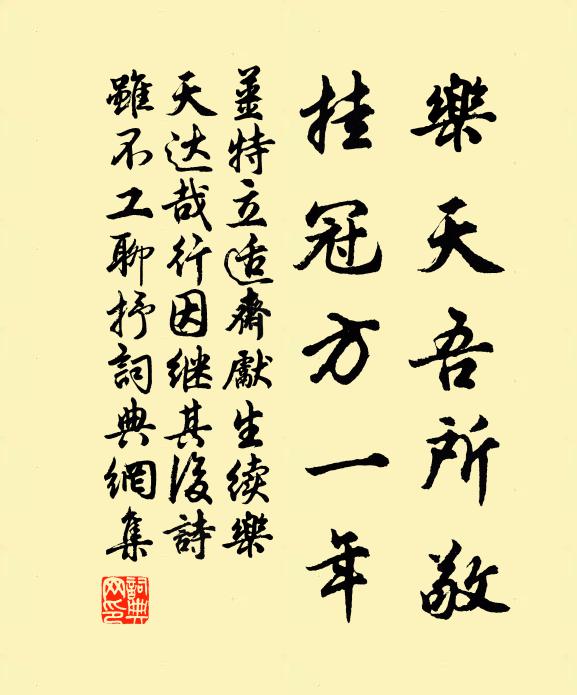 樂天吾所敬
挂冠方一年
薑特立适齋獻生续樂
天达哉行因继其後詩
雖不工聊抒詞典網集
詞典网印